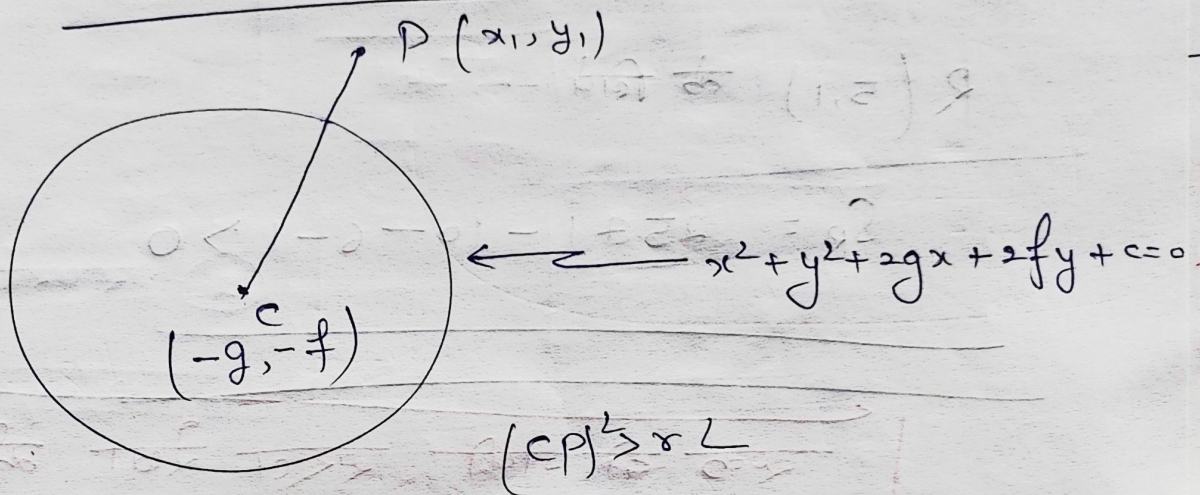 P (x₁, y₁)
x² + y² + 2gx + 2fy + c = 0
C
(-g, -f)
(CP)² > r²